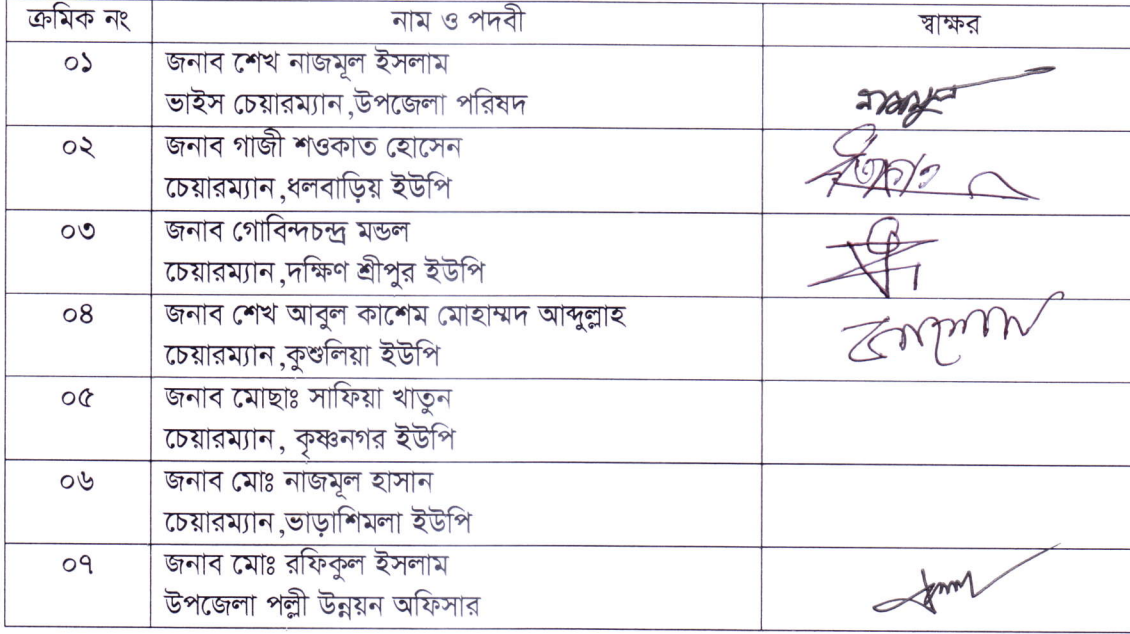 ক্রমিক নং নাম ও পদবী স্বাক্ষর
০১ জনাব শেখ নাজমূল ইসলাম
ভাইস চেয়ারম্যান,উপজেলা পরিষদ
নাজমুল
০২ জনাব গাজী শওকাত হোসেন
চেয়ারম্যান,ধলবাড়িয় ইউপি
শওকাত
০৩ জনাব গোবিন্দচন্দ্র মন্ডল
চেয়ারম্যান,দক্ষিণ শ্রীপুর ইউপি
০৪ জনাব শেখ আবুল কাশেম মোহাম্মদ আব্দুল্লাহ
চেয়ারম্যান,কুশুলিয়া ইউপি
০৫ জনাব মোছাঃ সাফিয়া খাতুন
চেয়ারম্যান, কৃষ্ণনগর ইউপি
০৬ জনাব মোঃ নাজমূল হাসান
চেয়ারম্যান,ভাড়াশিমলা ইউপি
০৭ জনাব মোঃ রফিকুল ইসলাম
উপজেলা পল্লী উন্নয়ন অফিসার